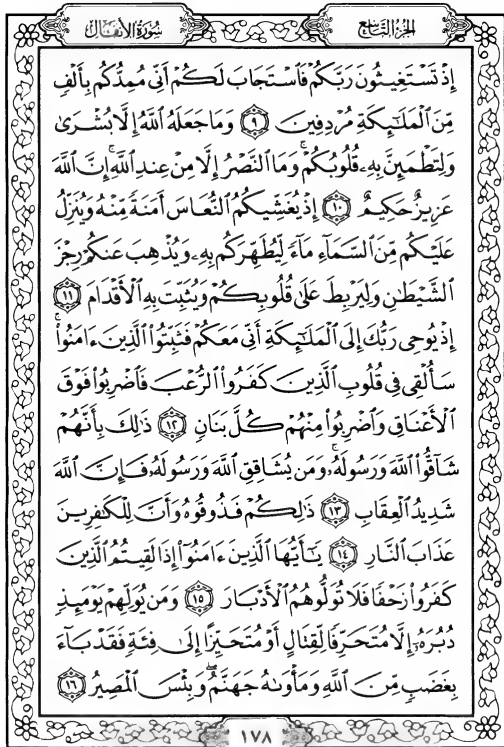 الجزء التاسع
سورة الأنفال
إِذۡ تَسۡتَغِيثُونَ رَبَّكُمۡ فَٱسۡتَجَابَ لَكُمۡ أَنِّي مُمِدُّكُم بِأَلۡفٖ
مِّنَ ٱلۡمَلَٰٓئِكَةِ مُرۡدِفِينَ ٩ وَمَا جَعَلَهُ ٱللَّهُ إِلَّا بُشۡرَىٰ
وَلِتَطۡمَئِنَّ بِهِۦ قُلُوبُكُمۡۚ وَمَا ٱلنَّصۡرُ إِلَّا مِنۡ عِندِ ٱللَّهِۚ إِنَّ ٱللَّهَ
عَزِيزٌ حَكِيمٌ ١٠ إِذۡ يُغَشِّيكُمُ ٱلنُّعَاسَ أَمَنَةٗ مِّنۡهُ وَيُنَزِّلُ
عَلَيۡكُم مِّنَ ٱلسَّمَآءِ مَآءٗ لِّيُطَهِّرَكُم بِهِۦ وَيُذۡهِبَ عَنكُمۡ رِجۡزَ
ٱلشَّيۡطَٰنِ وَلِيَرۡبِطَ عَلَىٰ قُلُوبِكُمۡ وَيُثَبِّتَ بِهِ ٱلۡأَقۡدَامَ ١١
إِذۡ يُوحِي رَبُّكَ إِلَى ٱلۡمَلَٰٓئِكَةِ أَنِّي مَعَكُمۡ فَثَبِّتُواْ ٱلَّذِينَ ءَامَنُواْۚ
سَأُلۡقِي فِي قُلُوبِ ٱلَّذِينَ كَفَرُواْ ٱلرُّعۡبَ فَٱضۡرِبُواْ فَوۡقَ
ٱلۡأَعۡنَاقِ وَٱضۡرِبُواْ مِنۡهُمۡ كُلَّ بَنَانٖ ١٢ ذَٰلِكَ بِأَنَّهُمۡ
شَآقُّواْ ٱللَّهَ وَرَسُولَهُۥۚ وَمَن يُشَاقِقِ ٱللَّهَ وَرَسُولَهُۥ فَإِنَّ ٱللَّهَ
شَدِيدُ ٱلۡعِقَابِ ١٣ ذَٰلِكُمۡ فَذُوقُوهُ وَأَنَّ لِلۡكَٰفِرِينَ
عَذَابَ ٱلنَّارِ ١٤ يَٰٓأَيُّهَا ٱلَّذِينَ ءَامَنُوٓاْ إِذَا لَقِيتُمُ ٱلَّذِينَ
كَفَرُواْ زَحۡفٗا فَلَا تُوَلُّوهُمُ ٱلۡأَدۡبَارَ ١٥ وَمَن يُوَلِّهِمۡ يَوۡمَئِذٖ
دُبُرَهُۥٓ إِلَّا مُتَحَرِّفٗا لِّقِتَالٍ أَوۡ مُتَحَيِّزًا إِلَىٰ فِئَةٖ فَقَدۡ بَآءَ
بِغَضَبٖ مِّنَ ٱللَّهِ وَمَأۡوَىٰهُ جَهَنَّمُۖ وَبِئۡسَ ٱلۡمَصِيرُ ١٦
١٧٨